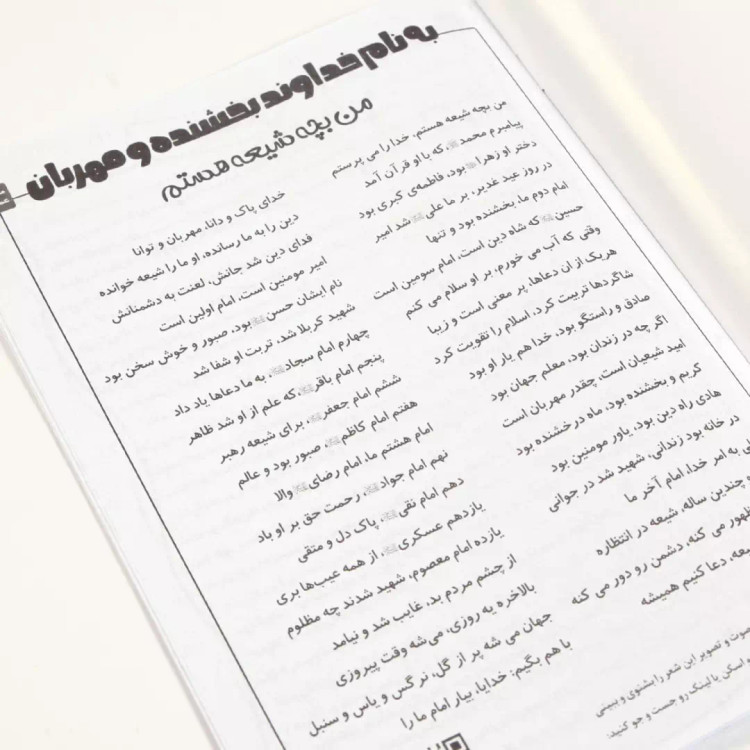 به نام خداوند بخشنده و مهربان
من بچه شیعه هستم
من بچه شیعه هستم، خدا را می پرستم
خدای پاک و دانا، مهربان و توانا
پیامبرم محمد که با او قرآن آمد
دین را به ما رسانده، او ما را شیعه خوانده
دختر او زهرا بود، فاطمه‌ی کبری بود
فدای دین شد جانش، لعنت به دشمنانش
در روز عید غدیر، بر ما علی شد امیر
امیر مومنین است، امام اولین است
امام دوم ما، بخشنده بود و تنها
نام ایشان حسن بود، صبور و خوش سخن بود
حسین که شاه دین است، امام سومین است
شهید کربلا شد، تربت او شفا شد
وقتی که آب می خورم، بر او سلام می کنم
چهارم امام سجاد، به ما دعاها یاد داد
هریک از ان دعاها، پر معنی است و زیبا
پنجم امام باقر، که علم از او شد ظاهر
شاگردها تربیت کرد، اسلام را تقویت کرد
ششم امام جعفر، برای شیعه رهبر
صادق و راستگو بود، خدا هم یار او بود
هفتم امام کاظم، صبور بود و عالم
اگر چه در زندان بود، معلم جهان بود
امام هشتم ما، امام رضای والا
امید شیعیان است، چقدر مهربان است
نهم امام جواد، رحمت حق بر او باد
کریم و بخشنده بود، ماه درخشنده بود
دهم امام نقی، پاک دل و متقی
هادی راه دین بود، یاور مومنین بود
یازدهم عسکری، از همه عیب‌ها بری
در خانه بود زندانی، شهید شد در جوانی
یازده امام معصوم، شهید شدند چه مظلوم
به امر خدا، امام آخر ما
از چشم مردم بد، غایب شد و نیامد
چندین ساله، شیعه در انتظاره
بالاخره یه روزی، می‌شه وقت پیروزی
ظهور می کنه، دشمن رو دور می کنه
جهان می شه پر از گل، نرگس و یاس و سنبل
دعا کنیم همیشه
با هم بگیم: خدایا، بیار امام ما را
صوت و تصویر این شعر را بشنوی و ببینی
اسکن یا لینک رو جست و جو کنید: